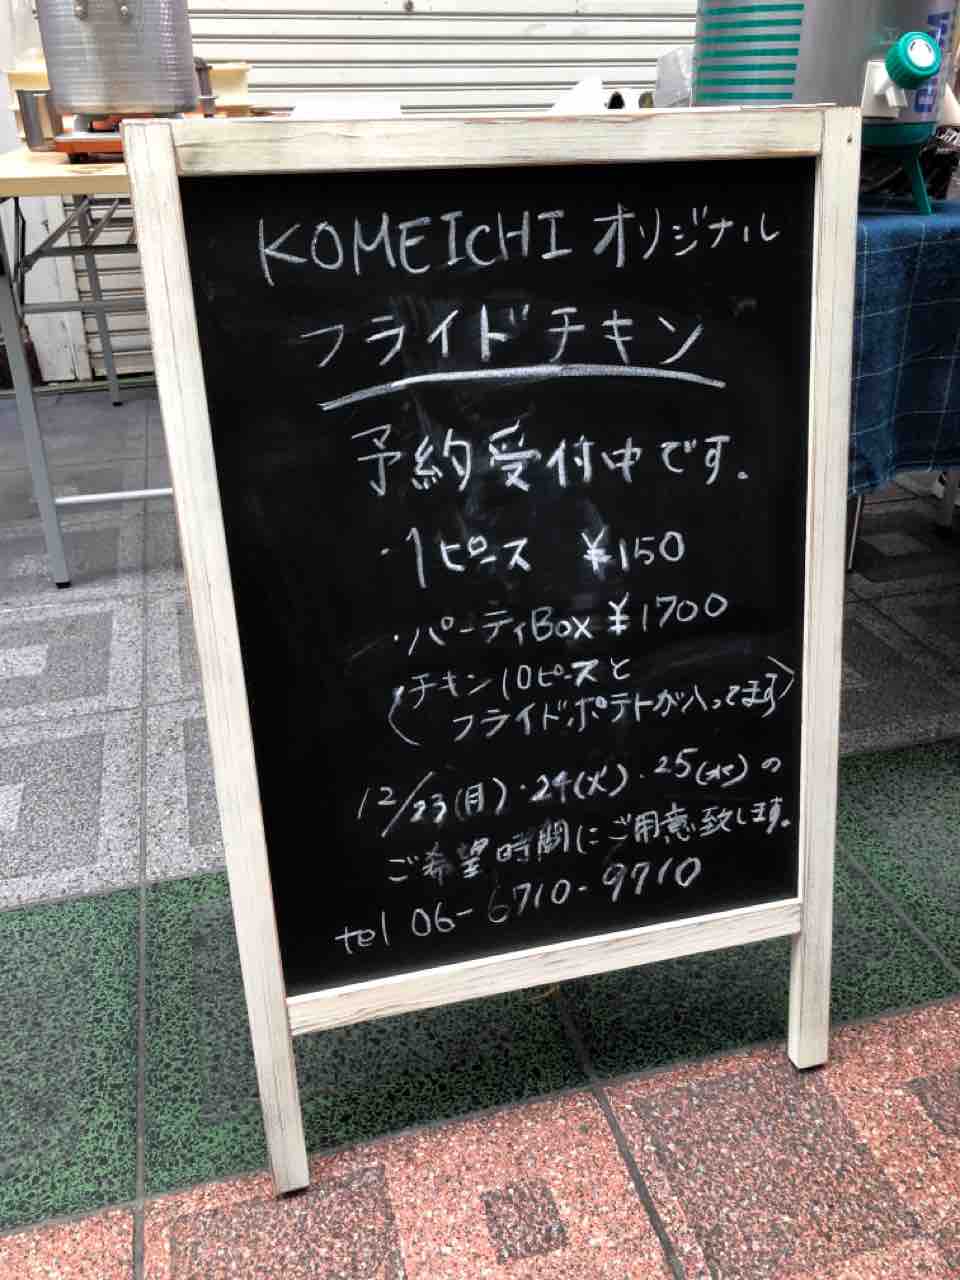 KOMEICHI オリジナル
フライドチキン
予約受付中です。
・1ピース ¥150
・パーティBox ¥1700
(チキン10ピースと
フライドポテトが入ってます)
12/23(月)・24(火)・25(水)の
ご希望時間にご用意致します。
tel 06-6710-9710